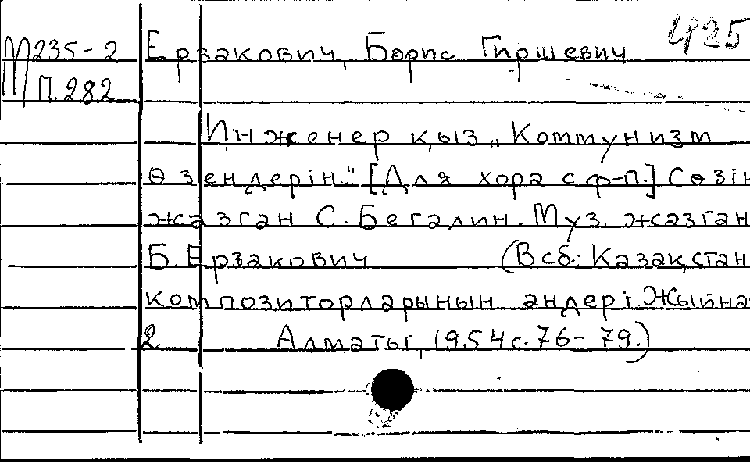 1925
М 235-2 Ерзакович, Борис Гиршевич
П.282
Инженер қыз „Коммунизм
өзендерін." [Для хора с ф-п.] Сөзін
жазған С. Бегалин. Муз. жазған
Б. Ерзакович (В сб: Казақстан
композиторларынын әндері. Жыйнақ
2 Алматы, 1954 с. 76-79.)